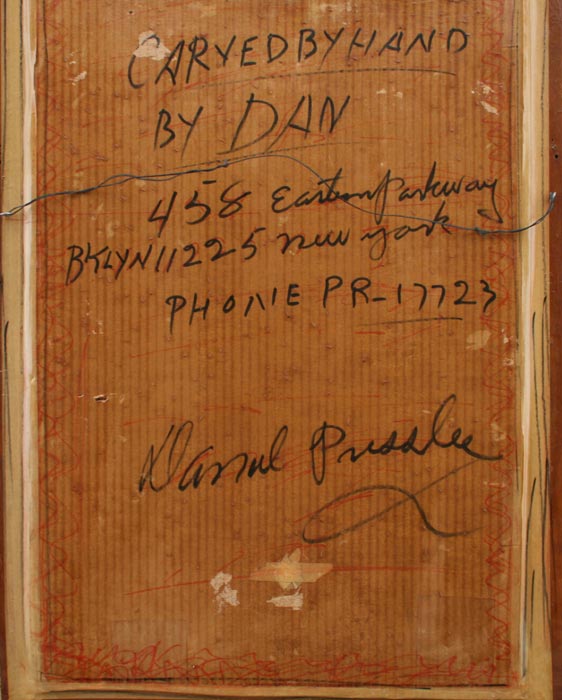 CARVED BY HAND
BY DAN
458 Eastern Parkway
BKLYN 11225 New York
PHONE PR-17723
Daniel Pressley